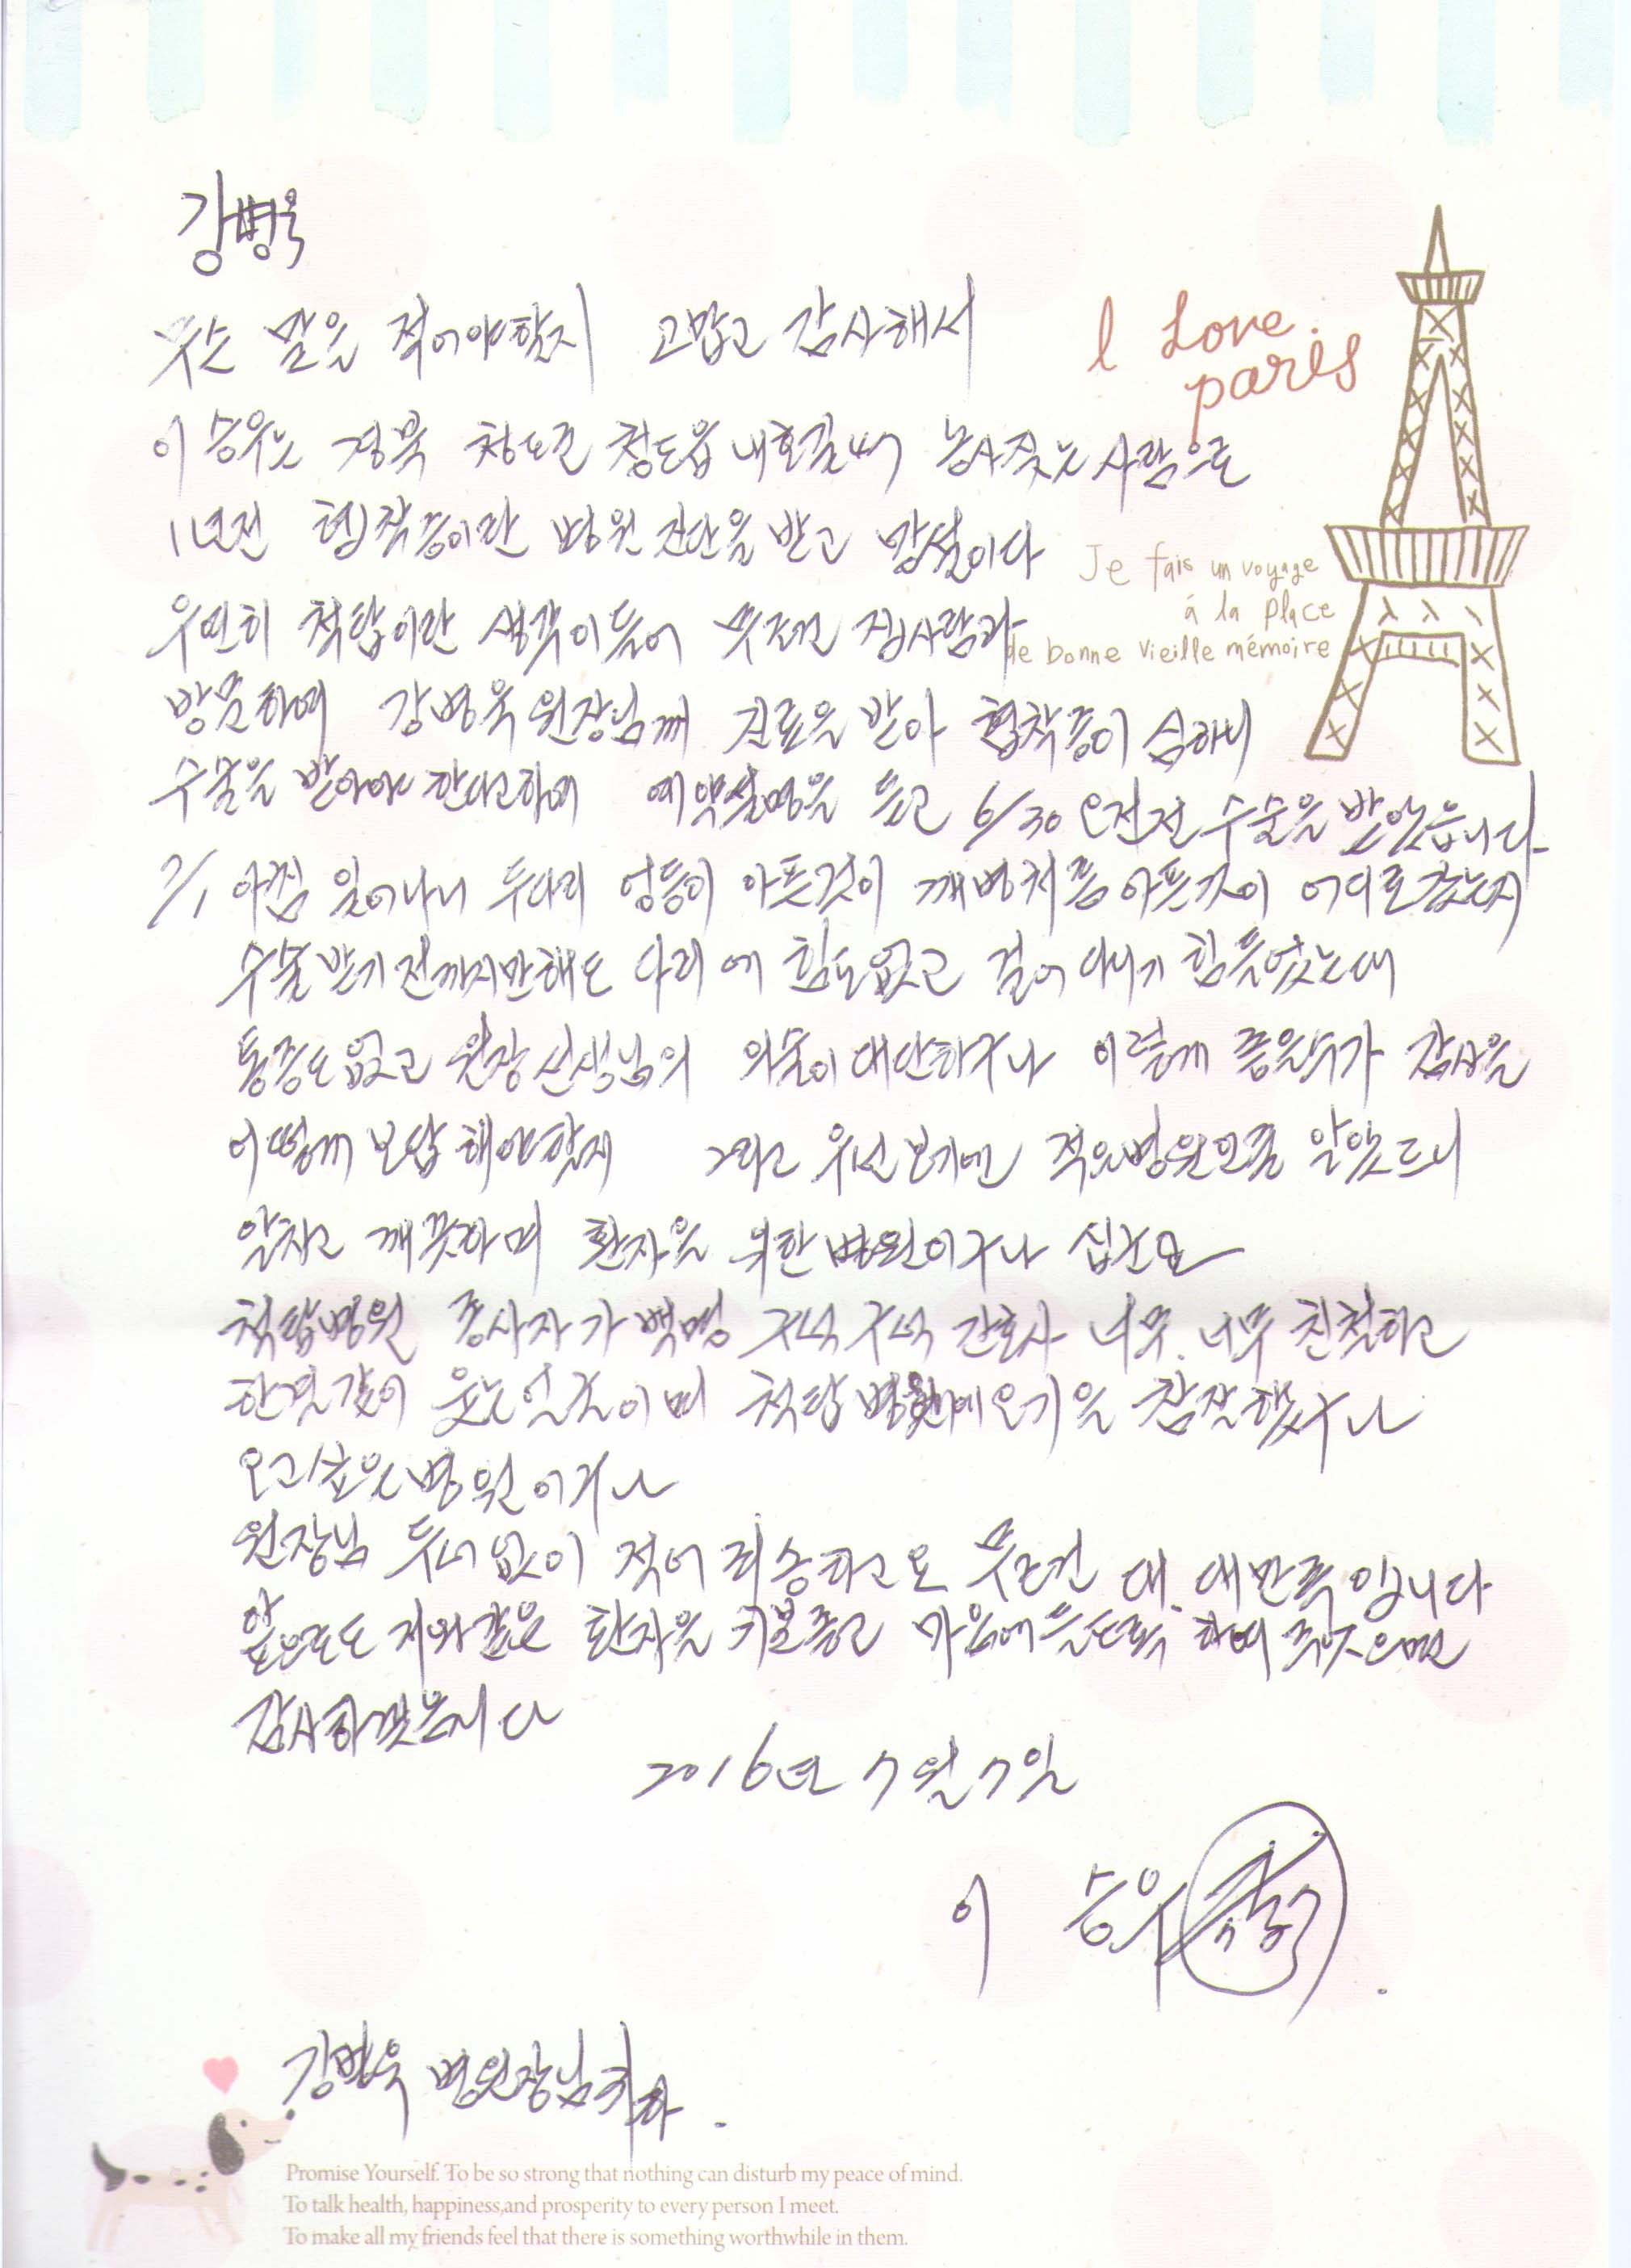 강병옥
무슨 말을 적어야할지 고맙고 감사해서
I Love
paris
이승우는 경북 청도군 청도읍 내호길47 농사짓는 사람으로
1년전 협착증이란 병원 진단을 받고 망설이다
Je fais un voyage
à la place
de bonne vieille mémoire
우연히 척탑이란 생각이들어 무조건 집사람과
방문하여 강병욱 원장님께 진료을 받아 협착증이 심하니
수술을 받아야 한다고하여 예약설명을 듣고 6/30 오전전 수술을 받았읍니다
7/1 아침 일어나니 두다리 엉등이 아픈것이 깨병처름 아픈것이 어디로갔는지
수술받기 전까지만해도 다리에 힘도없고 걸어다니기 힘들었는대
통증도없고 원장선생님의 의술이대단하구나 이렇게 좋을수가 감사을
어떻게 보답해야할지 그리고 우선 보기엔 적은병원인줄 알았드니
알차고 깨끗하며 환자을 위한 병원이구나 십슨요
척탑병원 종사자가 백명 간호사 너무. 너무 친절하고
한결같이 웃는얼굴이며 척탑병원에오기을 참잘했구나
오고싶은병원이구나
원장님 두서없이 적어 죄송하고요 무조건 대. 대만족입니다
앞으로도 저와같은 환자을 마음에들도록 하여 주시으면
감사하겟읍니다
2016년 7월 7일
이 승우
강병욱 병원장님귀하.
Promise Yourself. To be so strong that nothing can disturb my peace of mind.
To talk health, happiness,and prosperity to every person I meet.
To make all my friends feel that there is something worthwhile in them.